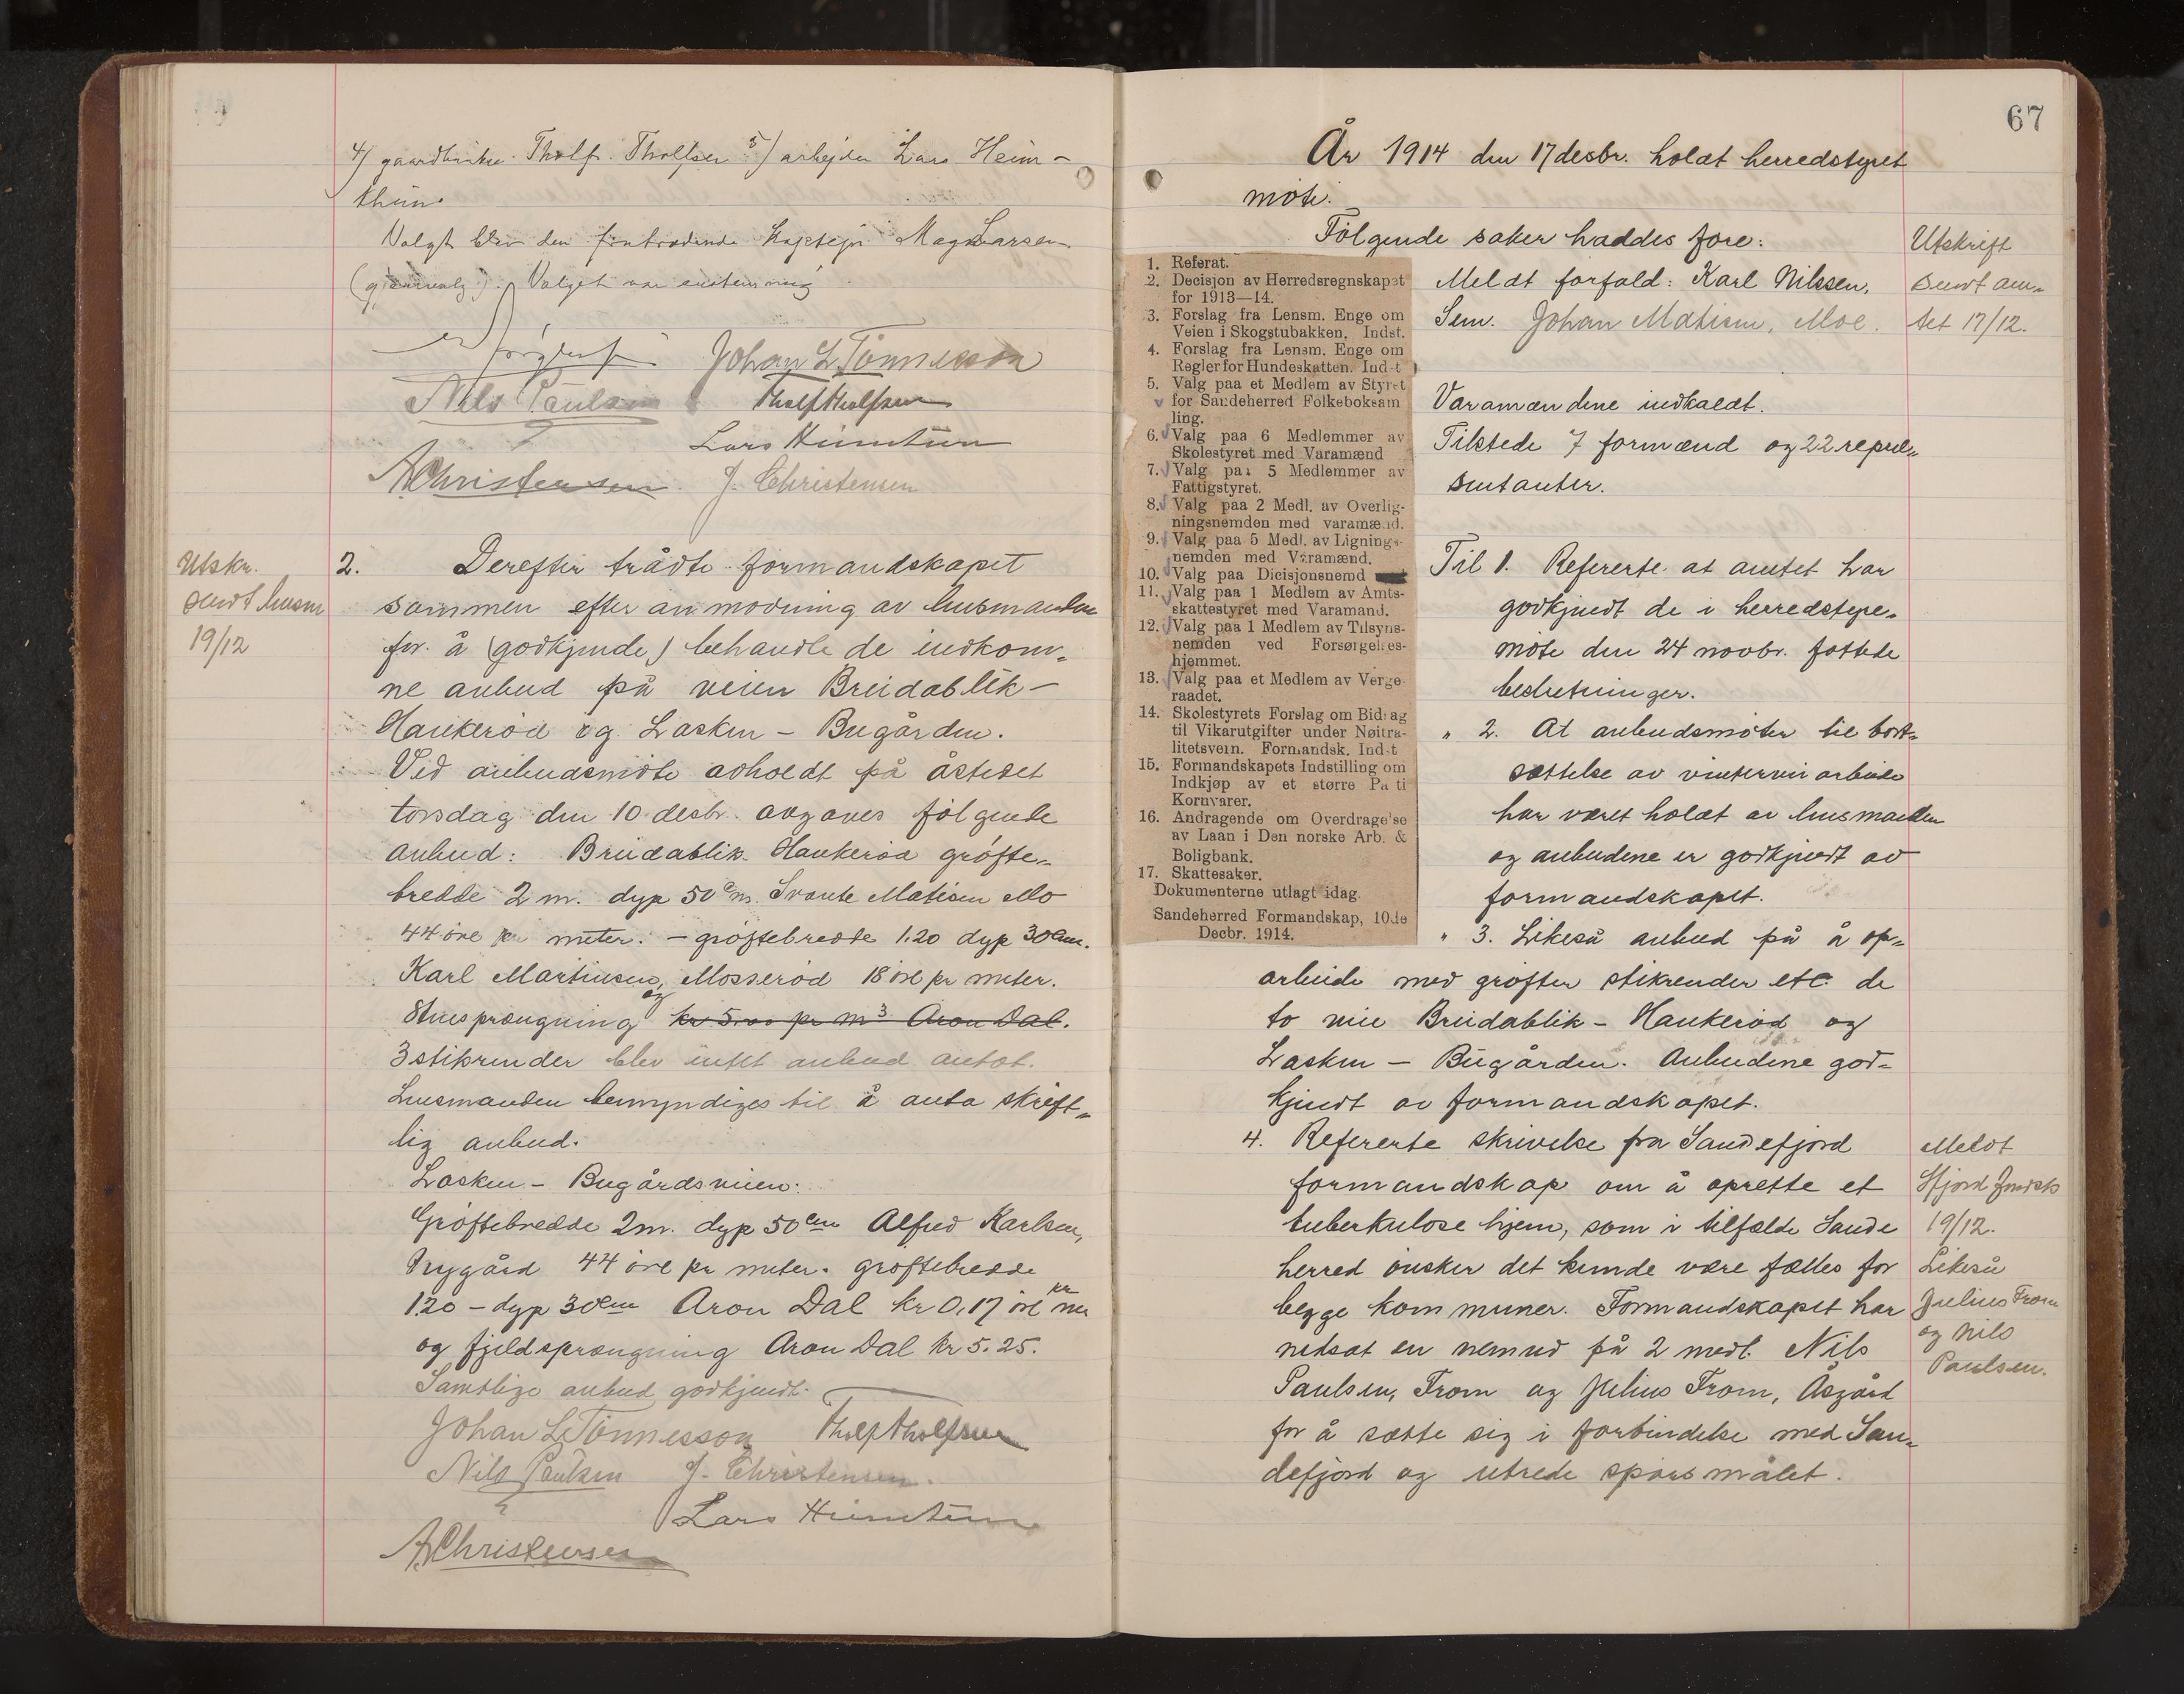 4) gaardbruker Tholf. Tholfsen 5) arbejder Lars Heim-
thun.
Valgt blev den fratrædende kaptejn Magn Larsen
(gjenvalg). Valget var enstemmig
Johan L Tönnesson
Nils Paulsen Tholf Tholfsen
Lars Heimtun
A Christensen J. Christensen
Utskr.
sendt lensm
19/12
2. Derefter trådte formandskapet
sammen efter anmodning av lensmanden
for å (godkjende) behandle de indkom-
ne anbud på veien Breidablik-
Haukerød og Lasken - Bugården.
Ved anbudsmöte avholdt på åstedet
torsdag den 10 desbr. avgaves fölgende
anbud: Breidablik-Haukeröd gröfte-
bredde 2 m. dyp 50 cm. Svante Matisen Mo
44 öre pr meter. - gröftebredde 1.20 dyp 30 cm.
Karl Martinsen, Mosseröd 18 öre pr meter.
Stensprængning og kr 5.00 pr m3 Aron Dal.
3 stikrender blev intet anbud antat.
Lensmanden bemyndiges til å anta skrift-
lig anbud.
Lasken - Bugårdsveien:
Gröftebredde 2 m. dyp 50 cm Alfred Karlsen,
Nygård 44 öre pr meter. gröftebredde
1.20 - dyp 30 cm Aron Dal kr 0,17 öre pr me
og fjeldsprængning Aron Dal kr 5.25.
Samtlige anbud godkjendt.
Johan L Tönnesson Tholf Tholfsen
Nils Paulsen J. Christensen.
Lars Heimtun
A Christensen
67
År 1914 den 17 desbr. holdt herredstyret
möte.
Fölgende saker haddes fore:
1. Referat.
2. Decisjon av Herredsregnskapet
for 1913—14.
3. Forslag fra Lensm. Enge om
Veien i Skogstubakken. Indst.
4. Forslag fra Lensm. Enge om
Regler for Hundeskatten. Indst
5. Valg paa et Medlem av Styret
for Sandeherred Folkeboksam
ling.
6. Valg paa 6 Medlemmer av
Skolestyret med Varamænd
7. Valg paa 5 Medlemmer av
Fattigstyret.
8. Valg paa 2 Medl. av Overlig-
ningsnemden med varamænd.
9. Valg paa 5 Medl. av Lignings-
nemden med Varamænd.
10. Valg paa Dicisjonsnemd
11. Valg paa 1 Medlem av Amts-
skattestyret med Varamand.
12. Valg paa 1 Medlem av Tilsyns-
nemden ved Forsørgelses-
hjemmet.
13. Valg paa et Medlem av Verge
raadet.
14. Skolestyrets Forslag om Bidrag
til Vikarutgifter under Nøitra-
litetsvern. Formandsk. Indst
15. Formandskapets Indstilling om
Indkjøp av et større Parti
Kornvarer.
16. Andragende om Overdragelse
av Laan i Den norske Arb. &
Boligbank.
17. Skattesaker.
Dokumenterne utlagt idag.
Sandeherred Formandskap, 10de
Decbr. 1914.
Meldt forfald: Karl Nilssen,
Sem. Johan Matisen, Moe.
Utskrift
sendt am-
tet 17/12.
Varamændene indkaldt.
Tilstede 7 formænd og 22 repræ-
sentanter.
Til 1. Refererte at amtet har
godkjendt de i herredstyre-
möte den 24 novbr. fattede
beslutninger.
" 2. At anbudsmöter til bort-
sættelse av vinterveiarbeide
har været holdt av lensmanden
og anbudene er godkjendt av
formandskapet.
" 3. Likeså anbud på å op-
arbeide med gröfter stikrender etc. de
to veie Breidablik - Haukeröd og
Lasken - Bugården. Anbudene god-
kjendt av formandskapet.
4. Refererte skrivelse fra Sandefjord
formandskap om å oprette et
tuberkulose hjem, som i tilfælde Sande
herred önsker det kunde være fælles for
begge kommuner. Formandskapet har
nedsat en nemnd på 2 medl. Nils
Paulsen, From og Julius From, Åsgård
for å sætte sig i forbindelse med San-
defjord og utrede spörsmålet.
Meldt
Sfjord fmdsk
19/12.
Likeså
Julius From
og Nils
Paulsen.